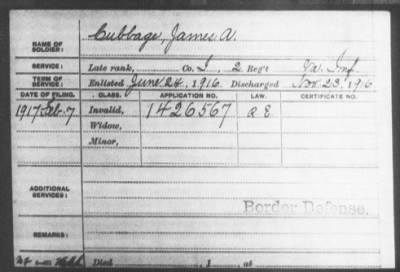 NAME OF SOLDIER: Cubbage, James A.
SERVICE: Late rank, Co. I, 2 Reg't Va. Inf.
TERM OF SERVICE: Enlisted June 24, 1916. Discharged Nov. 23, 1916
DATE OF FILING. CLASS. APPLICATION NO. LAW. CERTIFICATE NO.
1917 Feb. 7 Invalid, 1426567
Widow,
Minor,
ADDITIONAL SERVICES:
Border Defense.
REMARKS:
Died , 1 , at